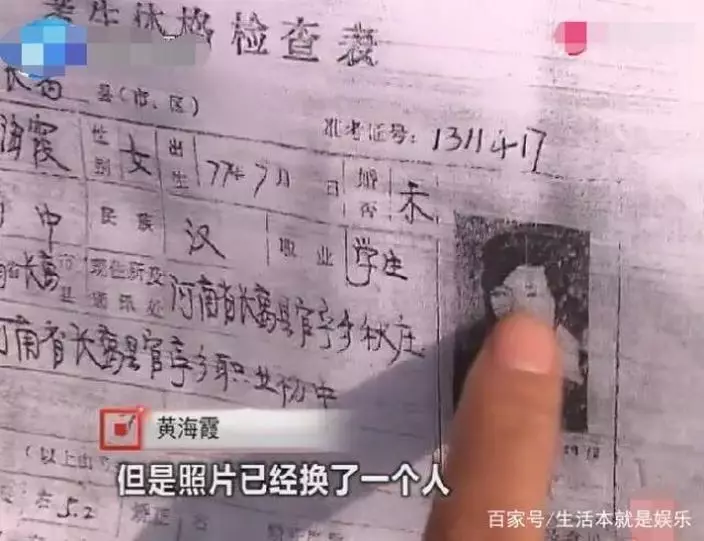 考生体格检查表
长葛 县(市、区) 准考证号: 1311417
海霞 性别 女 出生 77年7月 日 婚否 未
初中 民族 汉 职业 学生
省长葛市县 现住所或通讯处 河南省长葛县官亭乡秋庄
河南省长葛县官亭乡职业初中
黄海霞
但是照片已经换了一个人
(以上由
右 5.2 矫正 右
百家号/生活本就是娱乐